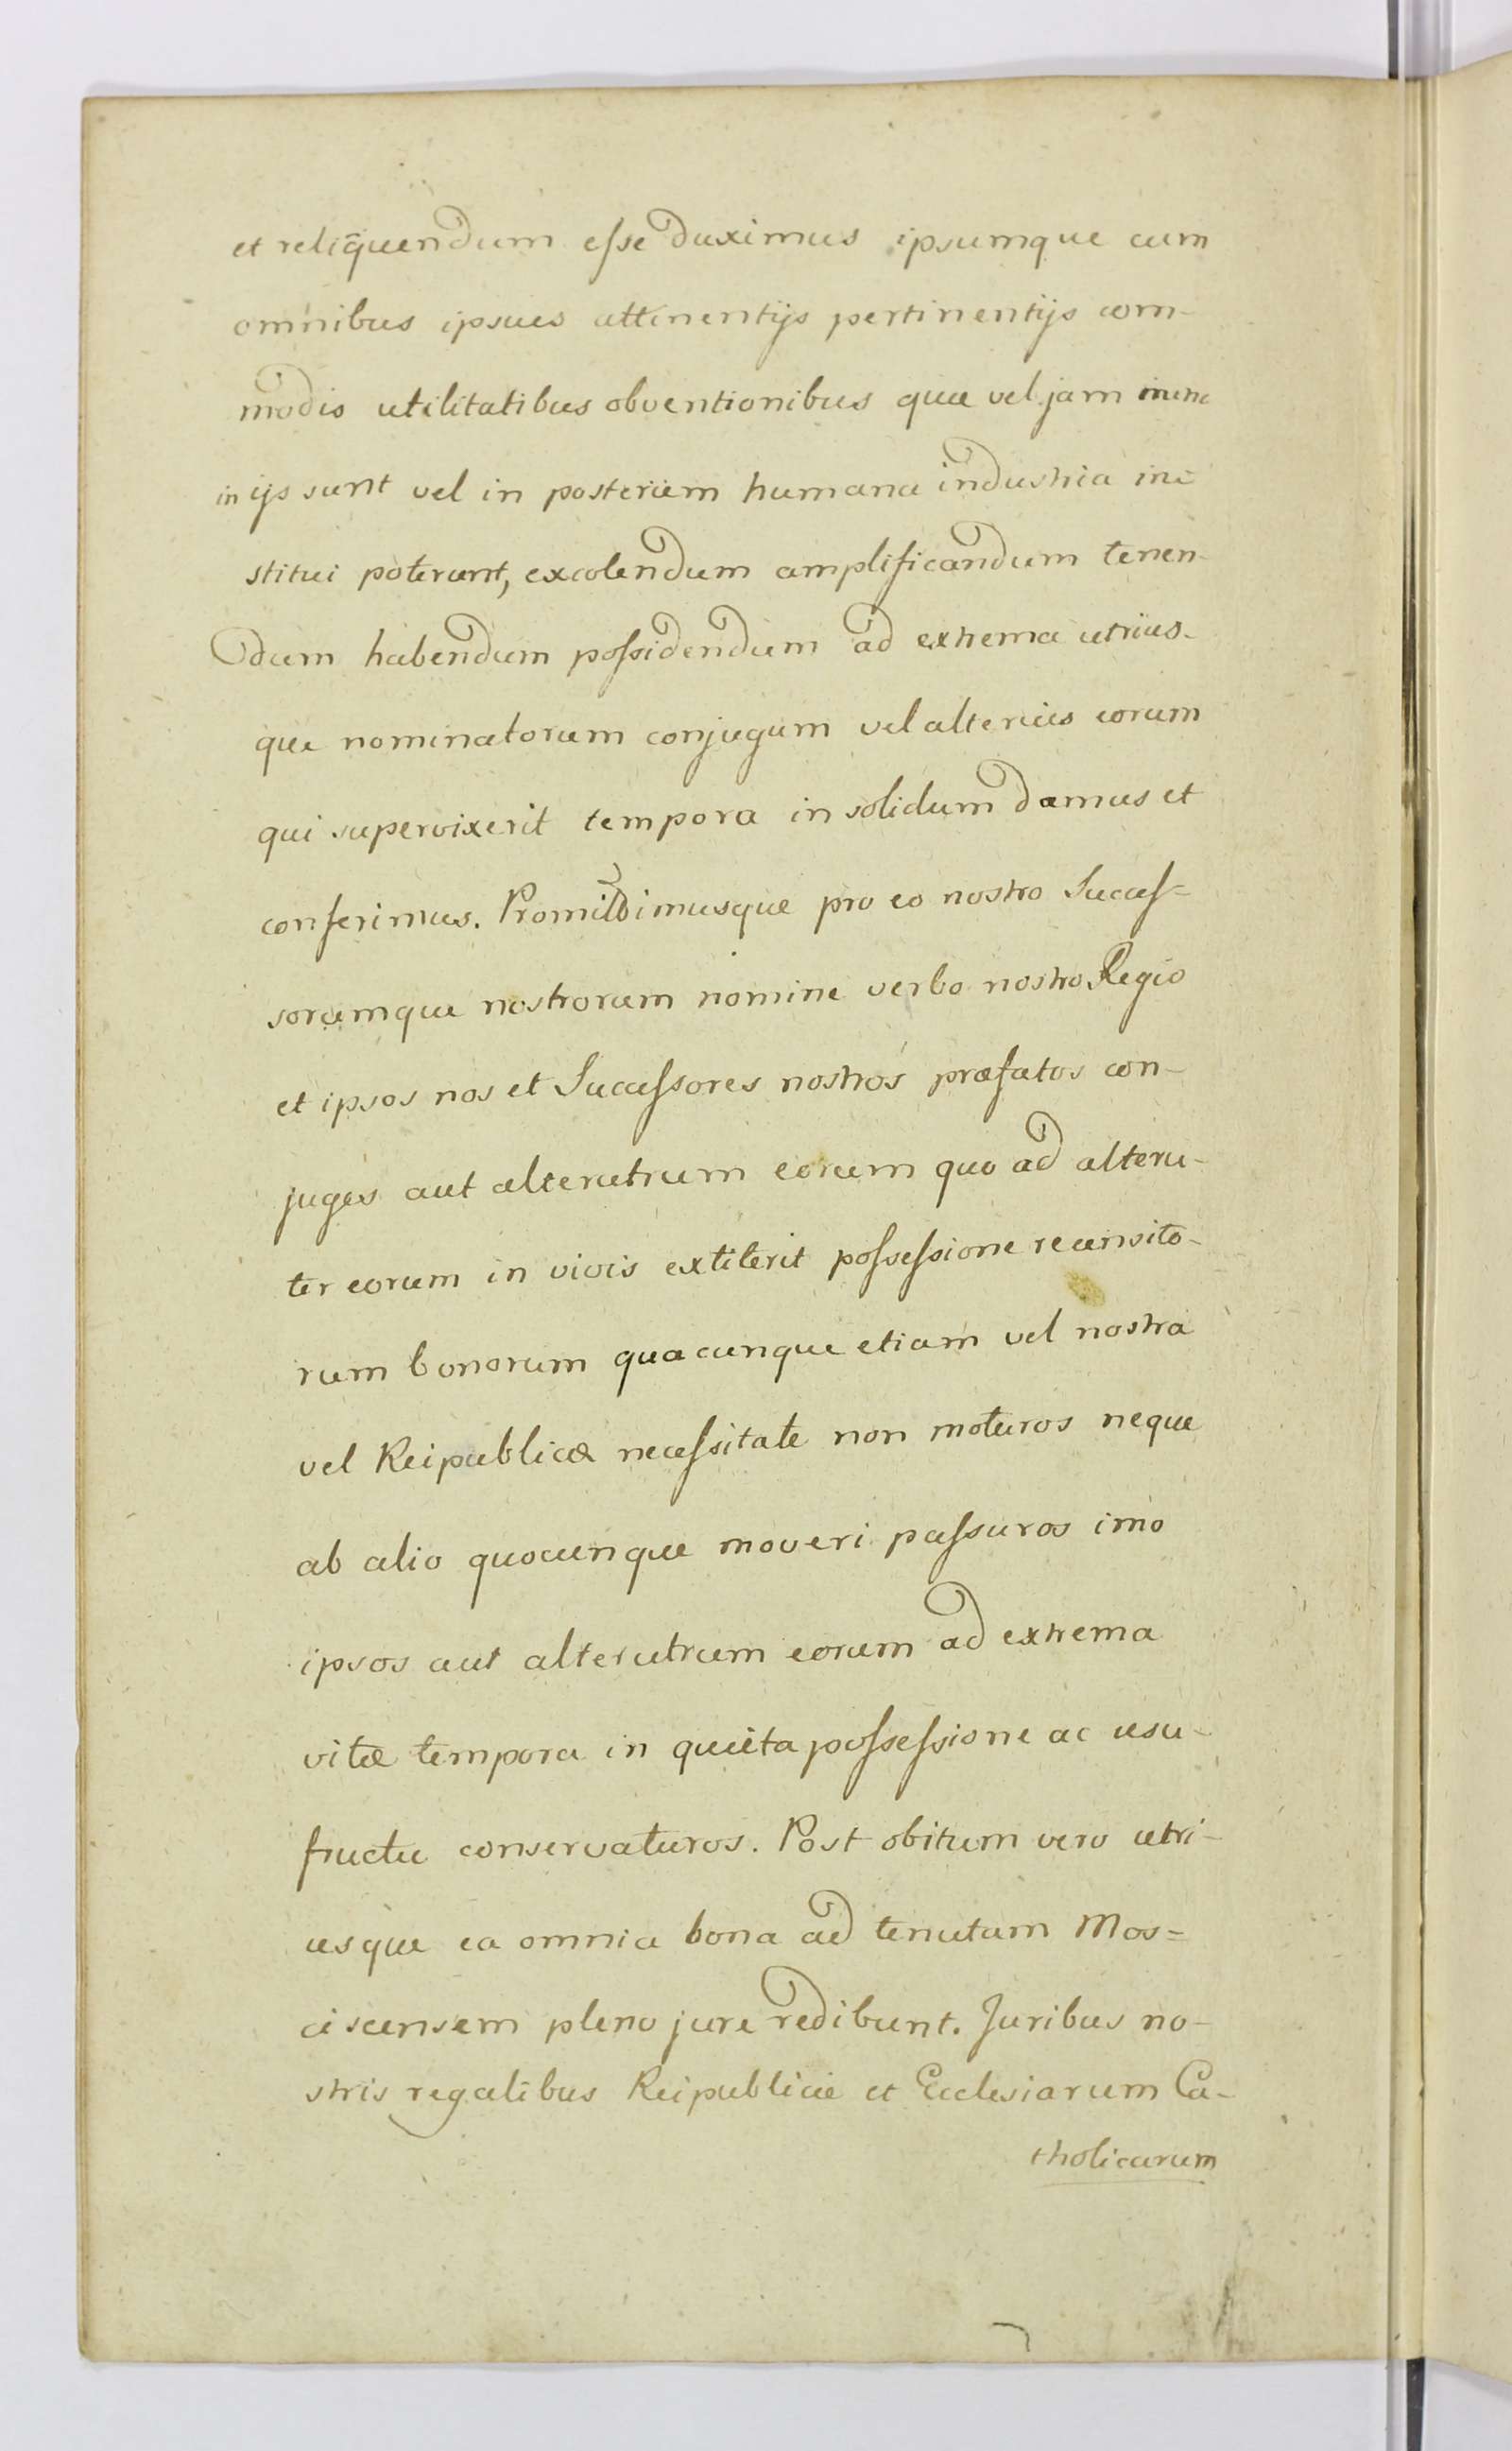 et reliquendum esse duximus ipsumque cum
omnibus ipsius attinentijs pertinentijs com-
modis utilitatibus obventionibus quæ vel jam nunc
in ijs sunt vel in posterum humana industria in-
stitui poterunt, excolendum amplificandum tenen-
dum habendum possidendum ad extrema utrius-
que nominatorum conjugum vel alterius eorum
qui supervixerit tempora in solidum damus et
conferimus. Promittimusque pro eo nostro Succes=
sorumque nostrorum nomine verbo nostro Regio
et ipsos nos et Successores nostros præfatos con-
juges aut alterutrum eorum quo ad alteru-
ter eorum in vivis extiterit possessione recensito-
rum bonorum quacunque etiam vel nostra
vel Reipublicæ necessitate non moturos neque
ab alio quocunque moveri passuros imo
ipsos aut alterutrum eorum ad extrema
vitæ tempora in quieta possessione ac usu-
fructu conservaturos. Post obitum vero utri-
usque ea omnia bona ad tenutam Mos=
ciscensem pleno jure redibunt. Juribus no-
stris regalibus Reipublicæ et Ecclesiarum Ca-
tholicarum